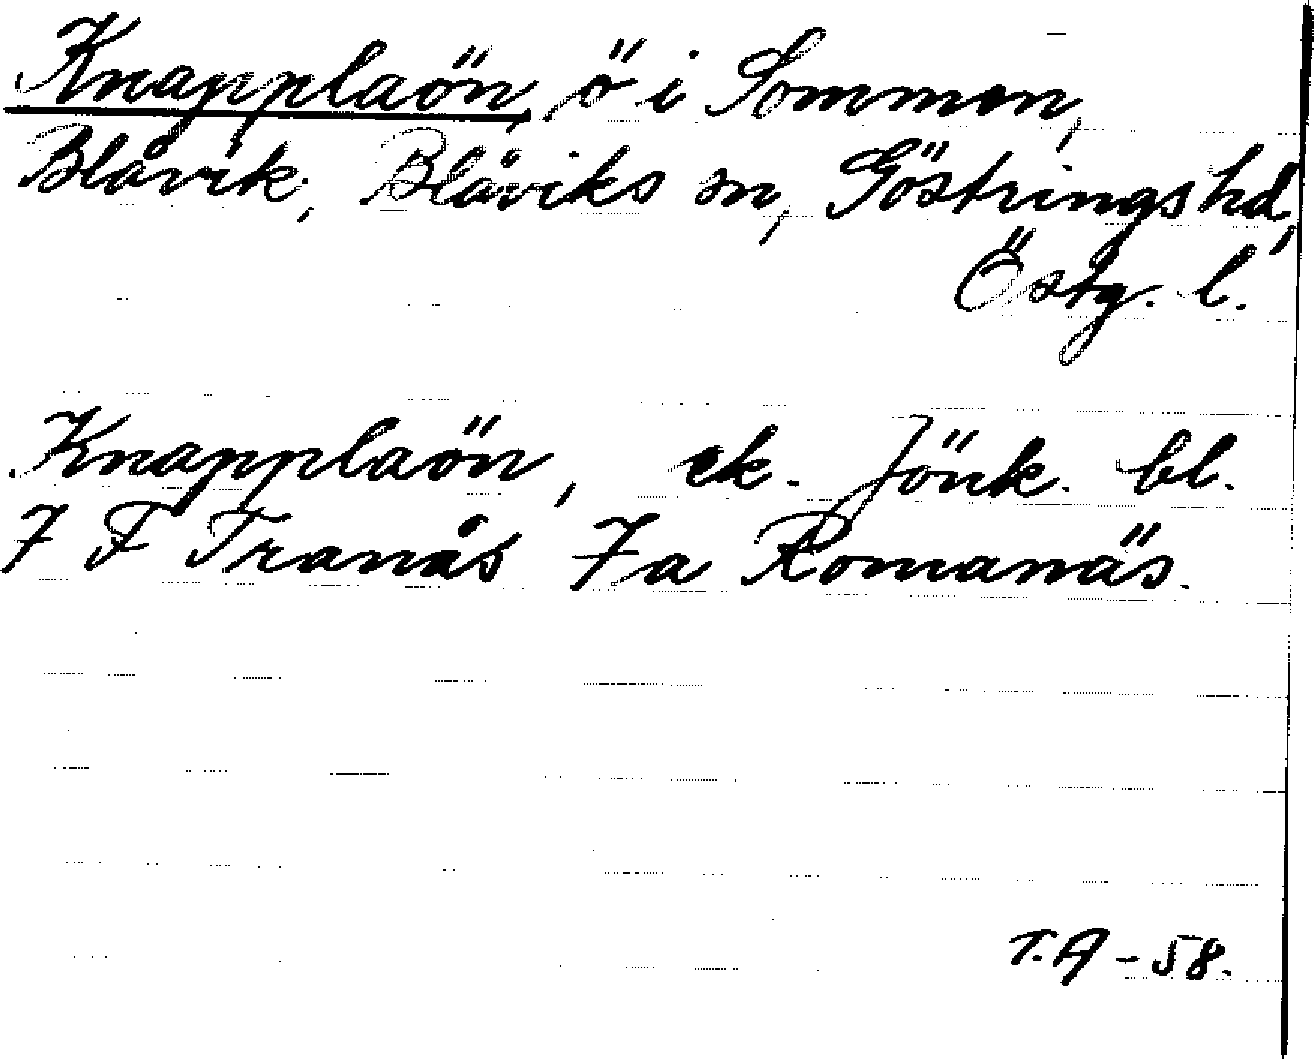 Knapplaön, ö i Sommen,
Blåvik, Blåviks sn, Göstrings hd,
Östg. l.
Knapplaön, ek. Jönk. bl.
7 F Tranås 7a Romanäs.
T.A - 58.